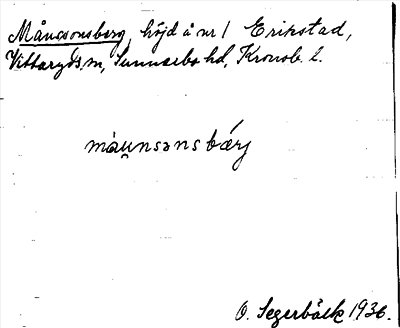 Månsonsberg, höjd å nr 1 Erikstad,
Vittaryds sn, Sunnerbo hd, Kronob. l.
måu̯nsənsbærj
O. Segerbäck 1936.